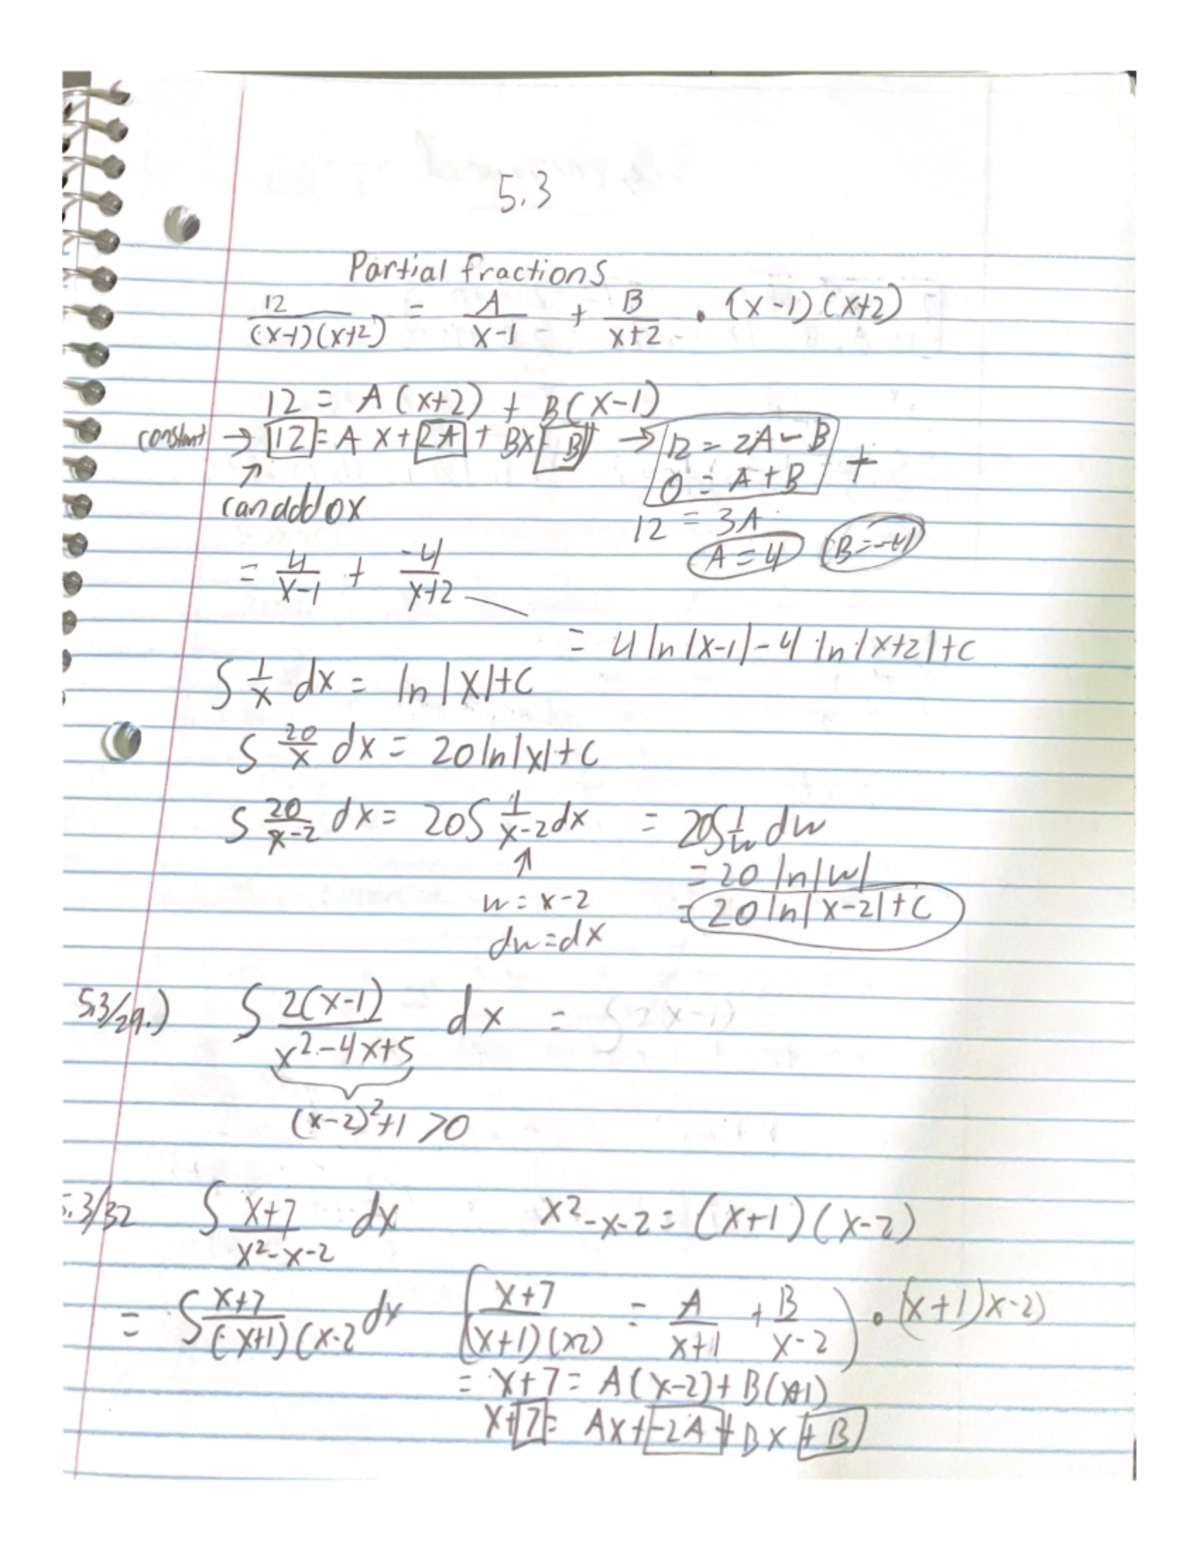 5.3
Partial fractions
12/((x-1)(x+2)) = A/(x-1) + B/(x+2) • (x-1)(x+2)
12 = A(x+2) + B(x-1)
constant → 12 = Ax + 2A + Bx - B → 12 = 2A - B
0 = A + B +
↑
can add 0x
12 = 3A
A = 4 B = -4
= 4/(x-1) + -4/(x+2)
= 4 ln|x-1| - 4 ln|x+2| + C
∫ 1/x dx = ln|x| + C
∫ 20/x dx = 20 ln|x| + C
∫ 20/(x-2) dx = 20∫ 1/(x-2) dx = 20∫ 1/w dw
↑ = 20 ln|w|
w = x-2 = 20 ln|x-2| + C
dw = dx
5.3/29.) ∫ 2(x-1)/(x²-4x+5) dx =
(x-2)²+1 >0
5.3/32 ∫ x+7/(x²-x-2) dx x²-x-2 = (x+1)(x-2)
= ∫ x+7/((x+1)(x-2 dx (x+7/((x+1)(x2) = A/(x+1) + B/(x-2)) • (x+1)x-2)
= x+7 = A(x-2) + B(x+1)
x+7 = Ax + -2A + Bx + B